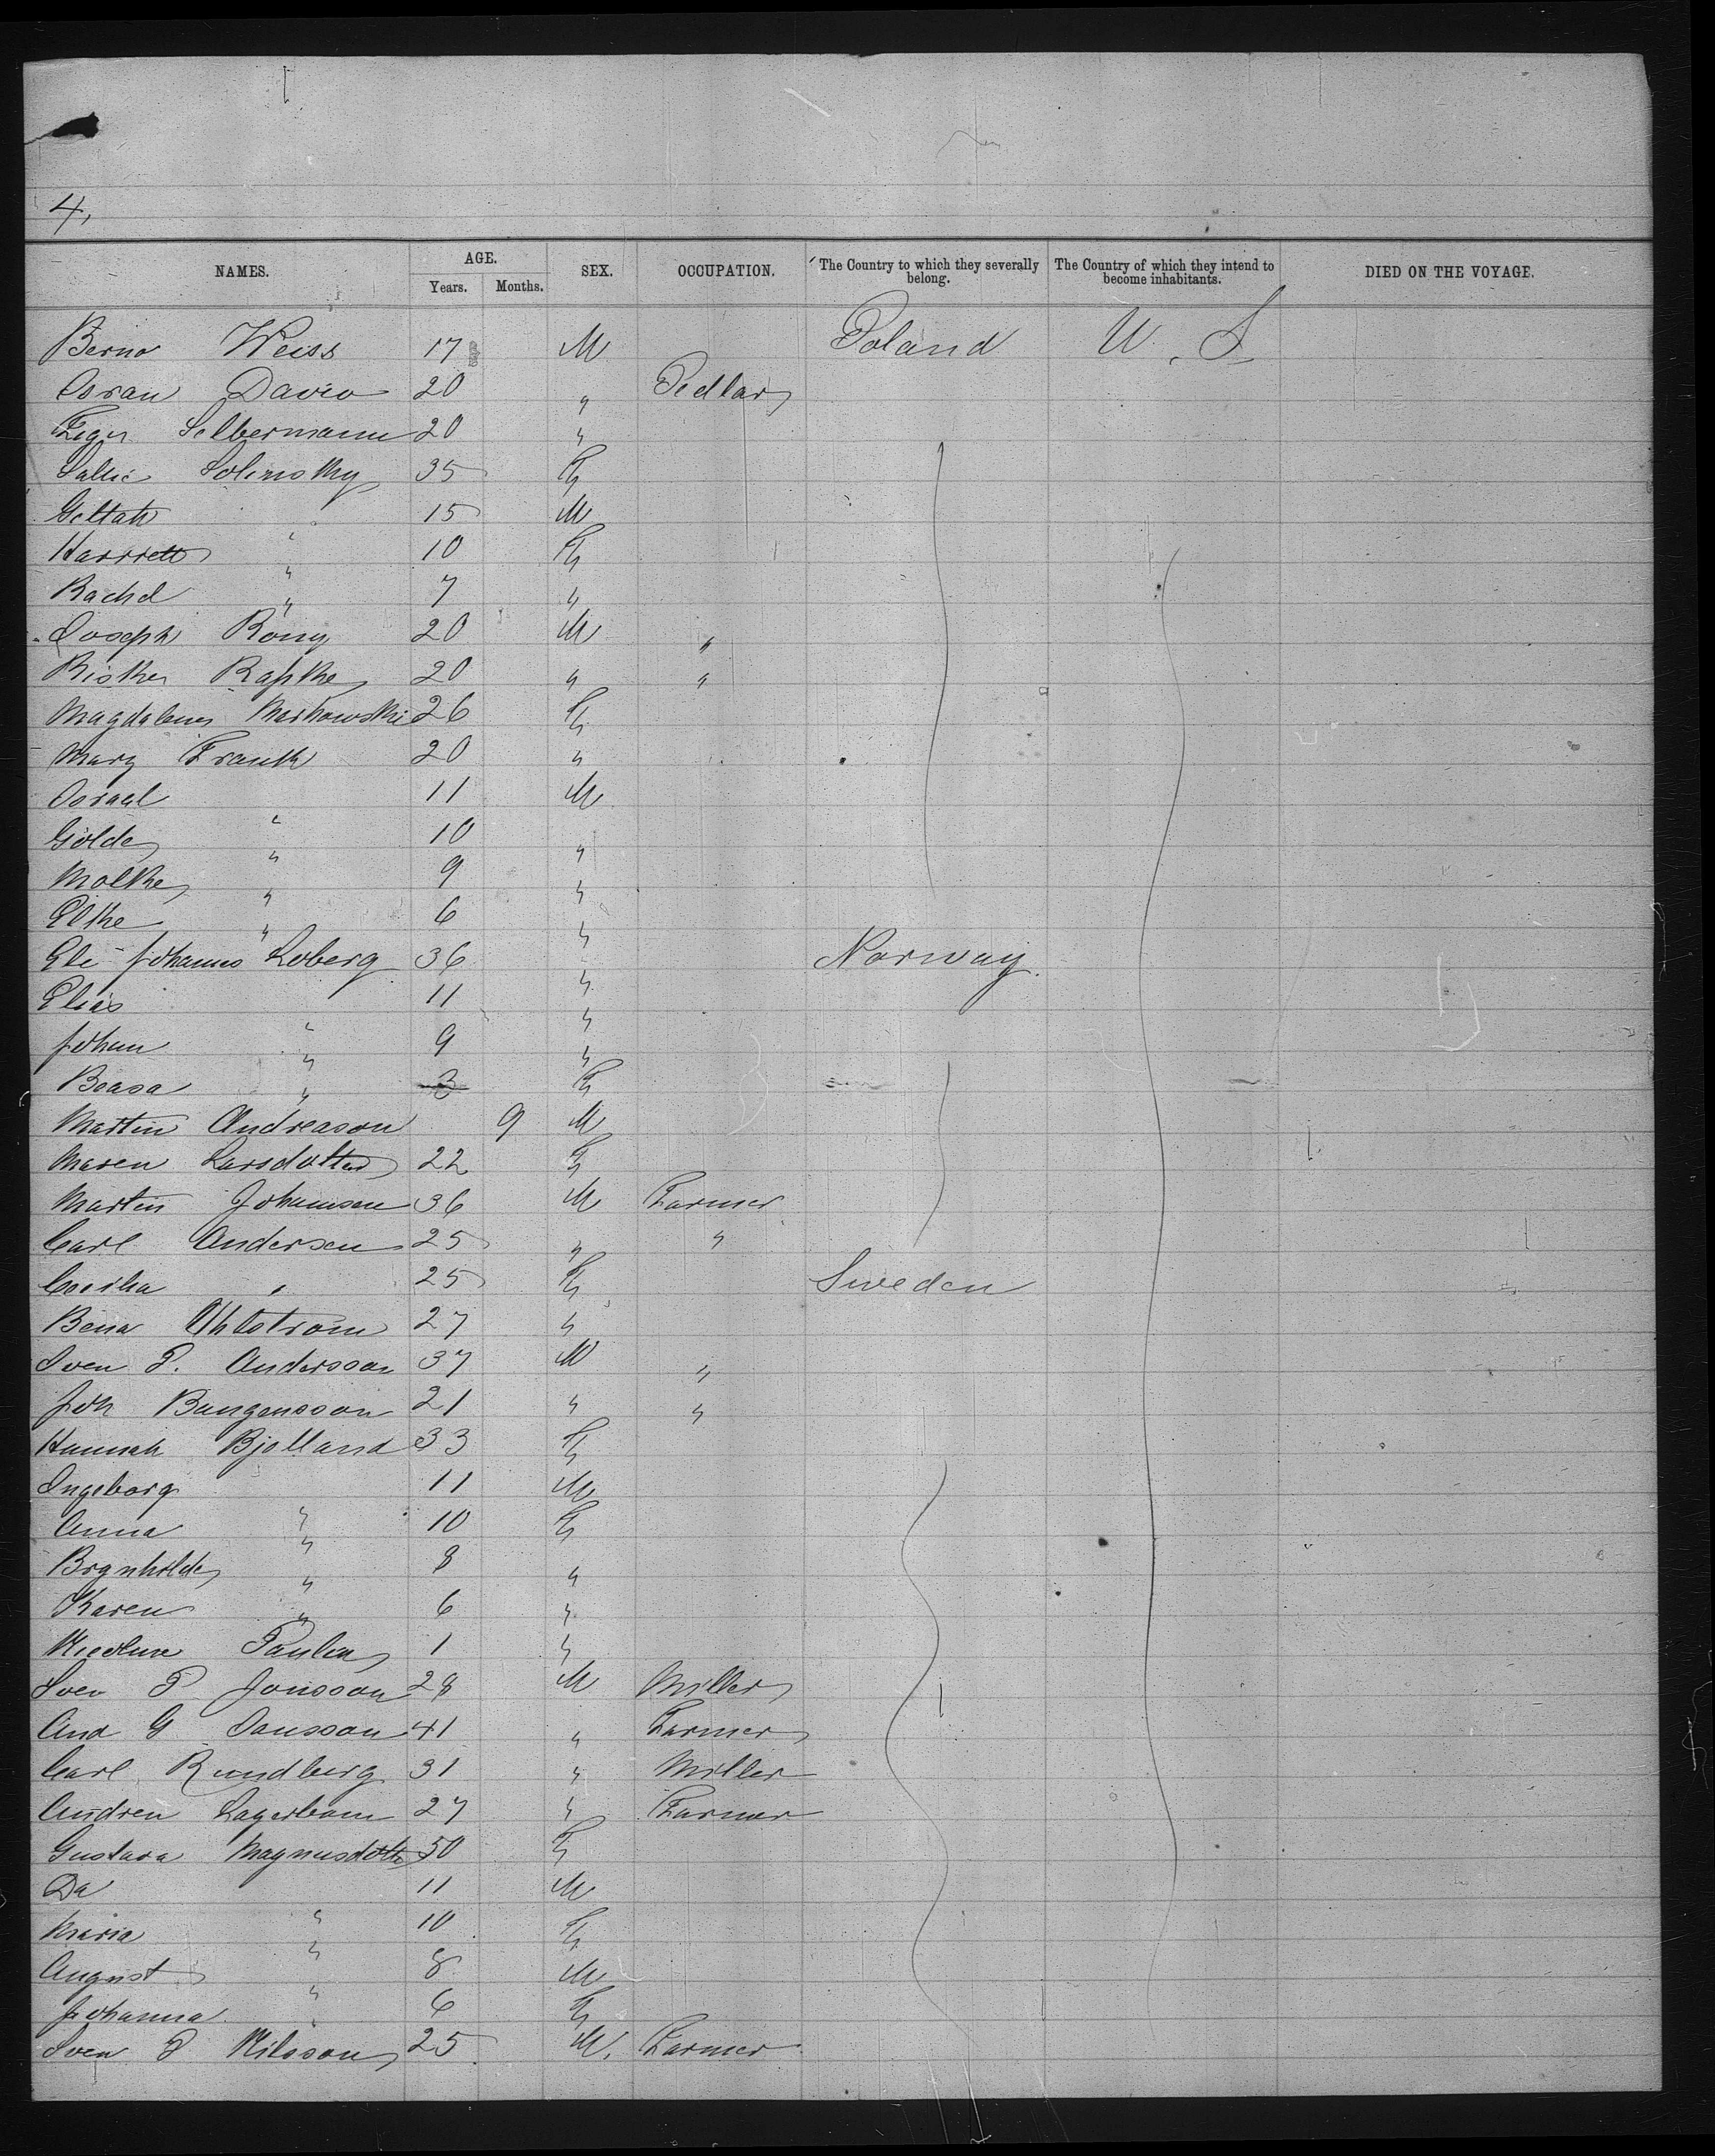 4,
NAMES. AGE. Years. Months. SEX. OCCUPATION. The Country to which they severally belong. The Country of which they intend to become inhabitants. DIED ON THE VOYAGE.
Berno Weiss 17 M Poland U. S
David 20 " Pedlar
Selbermann 20 "
Sallie Solinsky 35 F
Gettah " 15 M
Harrrett " 10 F
Rachel " 7 "
Joseph Rony 20 M "
Riske Rapke 20 " "
Magdalena Markowski 26 F
Mary Frank 20 "
Israel " 11 M
Golde " 10 "
Molke " 9 "
Elke " 6 "
Eli Johannes Loberg 36 " Norway
Elias " 11 "
Johan " 9 "
Beasa " 3 F
Martin Andreason 9 M
Maren Larsdotter 22 F
Martin Johannsen 36 M Farmer
Carl Andersen 25 " "
Cecilia " 25 F Sweden
Bena 27 "
Sven P. Andersson 37 M "
Joh Bungensson 21 " "
Hannah Bjelland 33 F
Ingeborg " 11 M
Anna " 10 F
Brynhilde " 8 "
Karen " 6 "
Paulin 1 "
Sven P Jonsson 28 M Miller
And G Jansson 41 " Farmer
Carl Rundberg 31 " Miller
Andren Lagerbom 27 " Farmer
Gustava Magnusdotter 50 F
Da " 11 M
Maria " 10 F
August " 8 M
Johanna " 6 F
Sven P Nilsson 25 M. Farmer